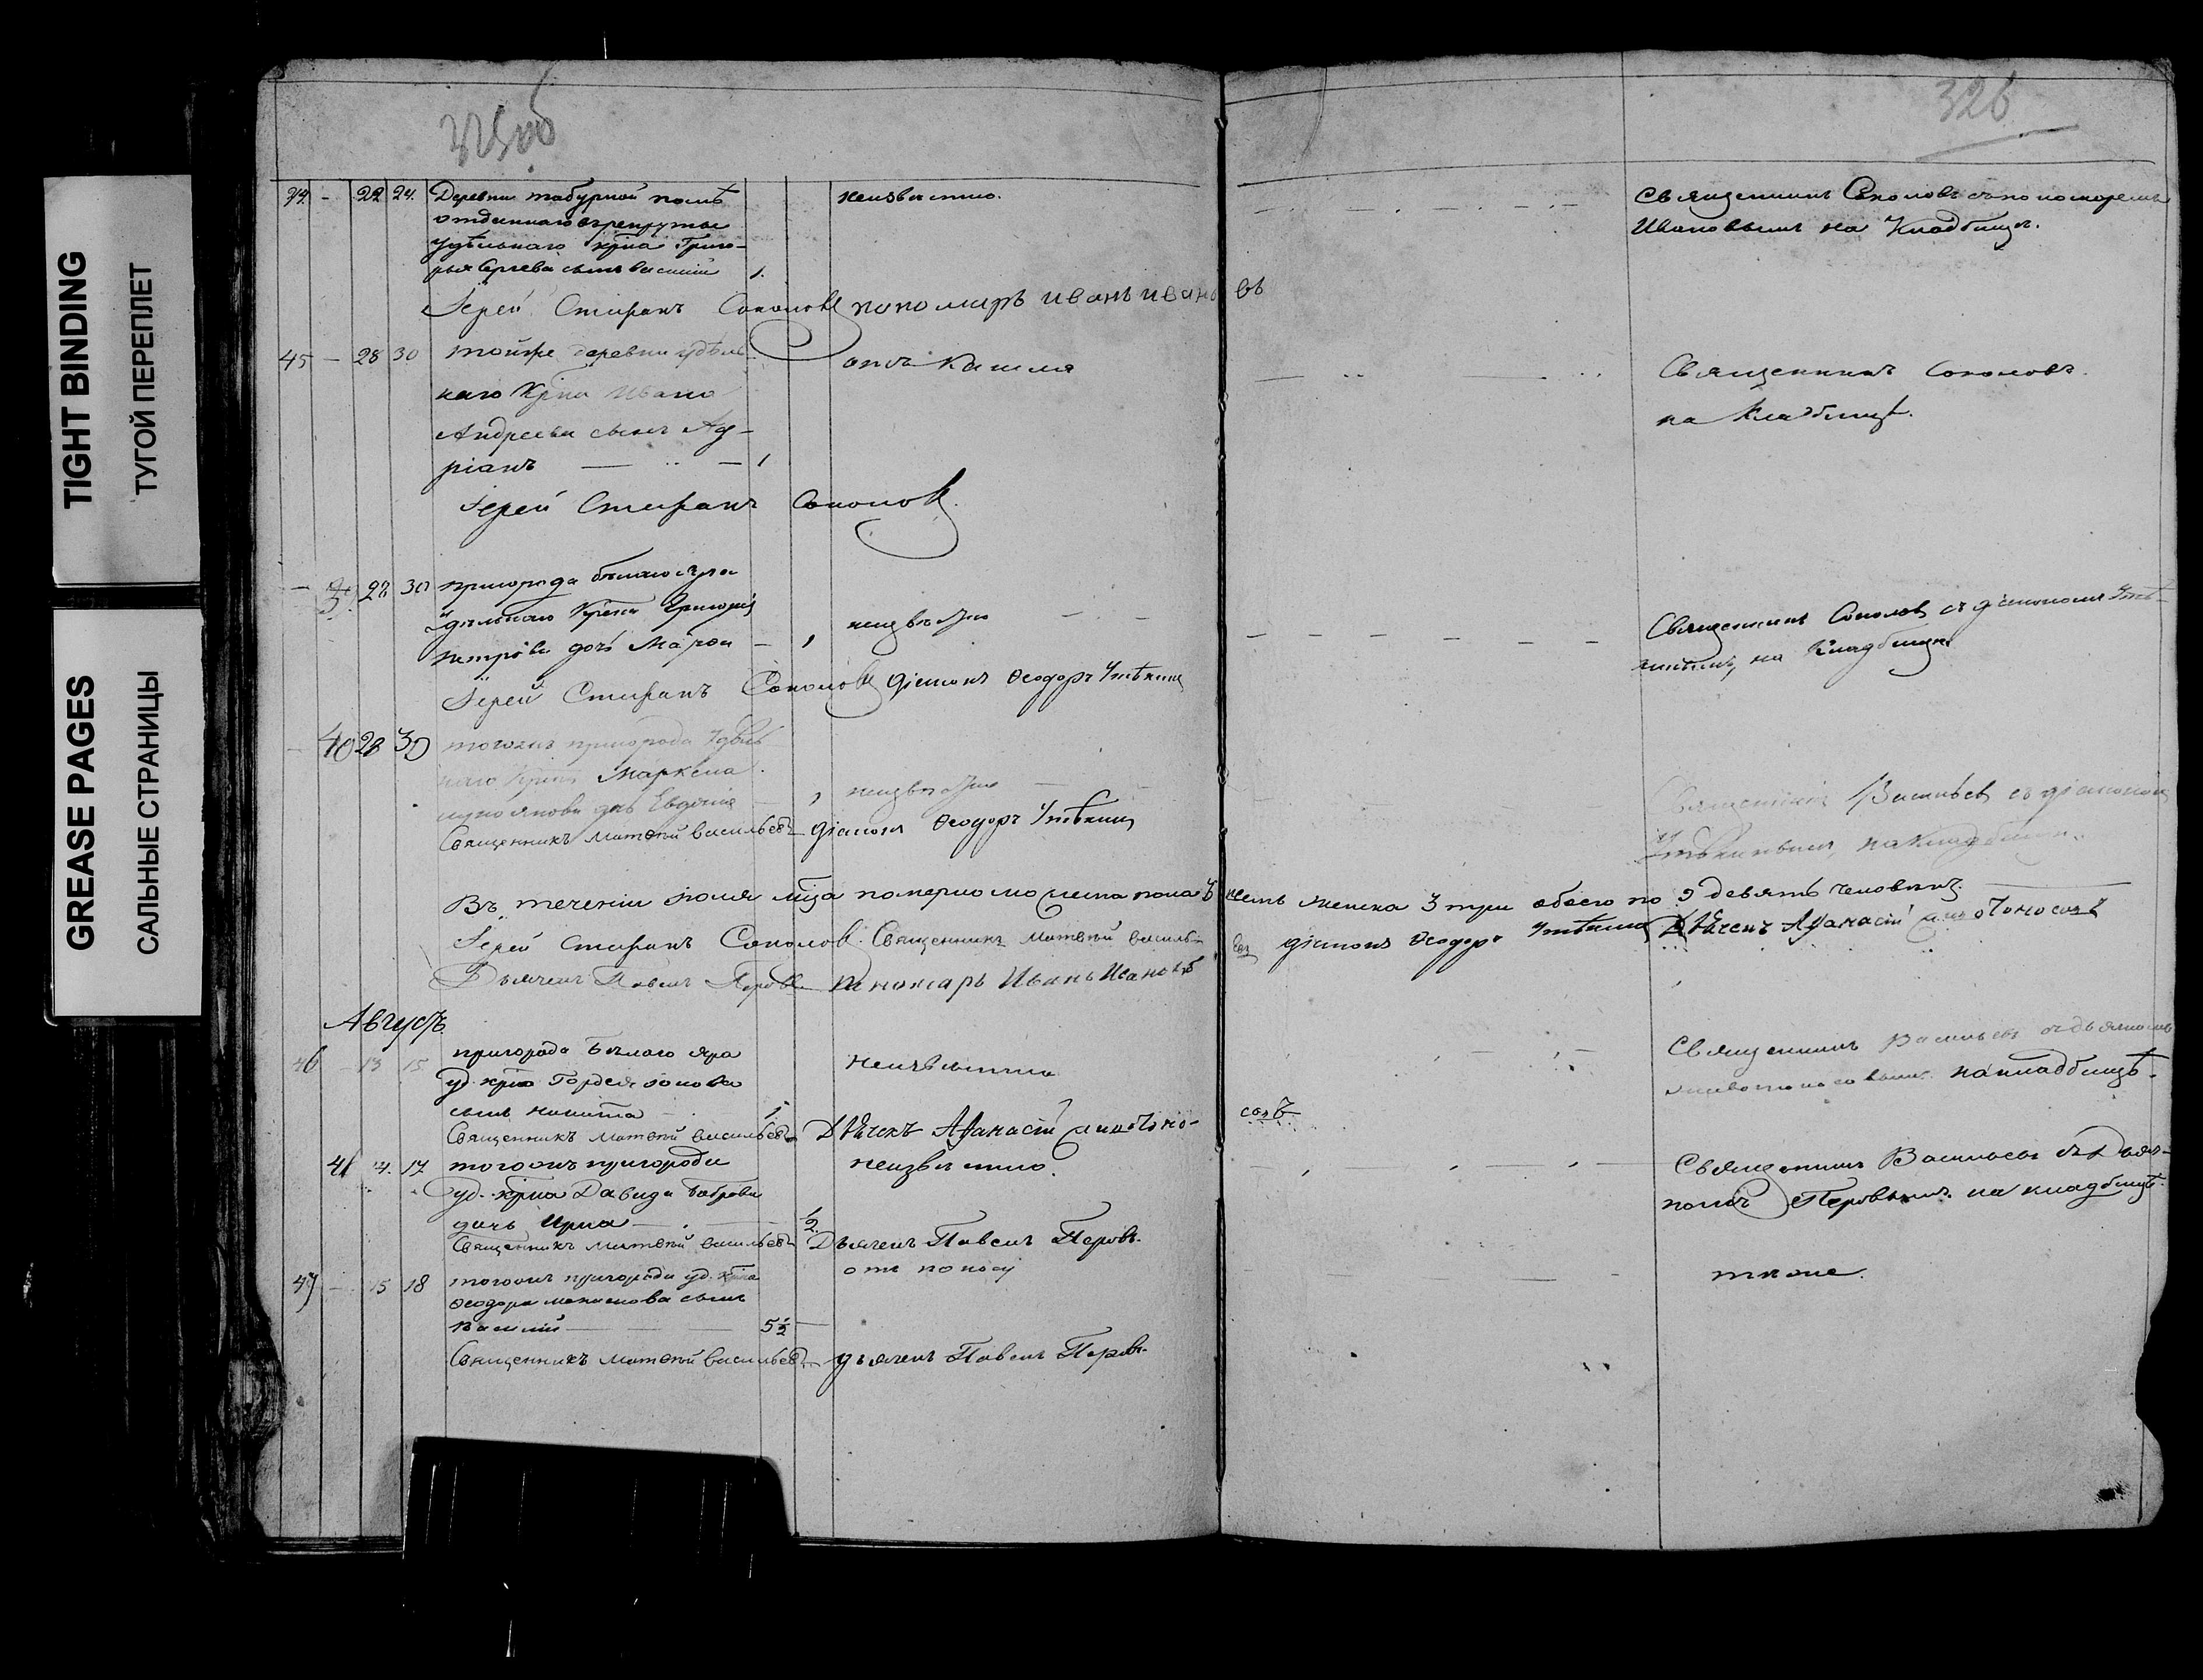 TIGHT BINDING
ТУГОЙ ПЕРЕПЛЕТ
GREASE PAGES
САЛЬНЫЕ СТРАНИЦЫ
325об
326
44. - 22 24. Деревни табурной послѣ
отданнаго в рекруты
удѣльнаго кр̃на Григо-
рья Сергева сынъ Василій 1.
неизвестно.
Священникъ Соколовъ съ пономаремъ
Ивановымъ на Кладбищѣ.
Іерей Стефанъ Соколовъ пономаръ иванъ ивановъ
45 - 28 30 тойже деревни удѣль
наго Кр̃на Ивана
Андреева сынъ Ад-
ріанъ 1
отъ кашля
Священникъ Соколовъ
на Кладбищѣ.
Іерей Стефанъ Соколовъ.
28 30 пригорода белаго яра
удѣльнаго Кр̃на Григорія
Петрова дочь
неизвѣстно
Священникъ Соколовъ съ діакономъ Утѣ-
кинымъ, на Кладбищѣ
Іерей Стефанъ Соколовъ діаконъ Ѳеодоръ Утѣкинъ
- 40 28 30 тогожъ пригорода Удѣль
наго Кр̃на
дочь Евдокія
неизвѣстно
Священникъ Васильевъ съ діакономъ
Утѣкинымъ, на Кладбищѣ.
Священникъ Матѳѣй Васильевъ діаконъ Ѳеодоръ Утѣкинъ
Въ теченіи іюля мц̃а померло мужеска пола 6 шесть женска 3 три обоего по 9 девять человѣкъ.
Іерей Стефанъ Соколовъ. Священникъ Матѳѣй Васильевъ діаконъ Ѳеодоръ Утѣкинъ Дьячекъ Аѳанасій
Дьячекъ Павелъ Перовъ пономарь Иванъ Ивановъ
Августъ.
46 13 15 пригорода Белаго яра
уд. кр̃на Гордея
сынъ Никита 1
неизвестно
Священникъ Васильевъ съ дьячкомъ
на кладбищѣ.
Священникъ Матѳѣй Васильевъ Дьячекъ Аѳанасій
41 14. 17 тогожъ пригорода
уд. кр̃на Давида Боброва
дочь Ирина ½.
неизвестно.
Священникъ Васильевъ съ Дьяч-
комъ Перовымъ на кладбищѣ.
Священникъ Матѳѣй Васильевъ Дьячекъ Павелъ Перовъ.
47 - 15 18 тогожъ пригорода уд. кр̃на
Ѳеодора сынъ
Василій 5½
отъ поносу
тоже.
Священникъ Матѳѣй Васильевъ дьячекъ Павелъ Перовъ.